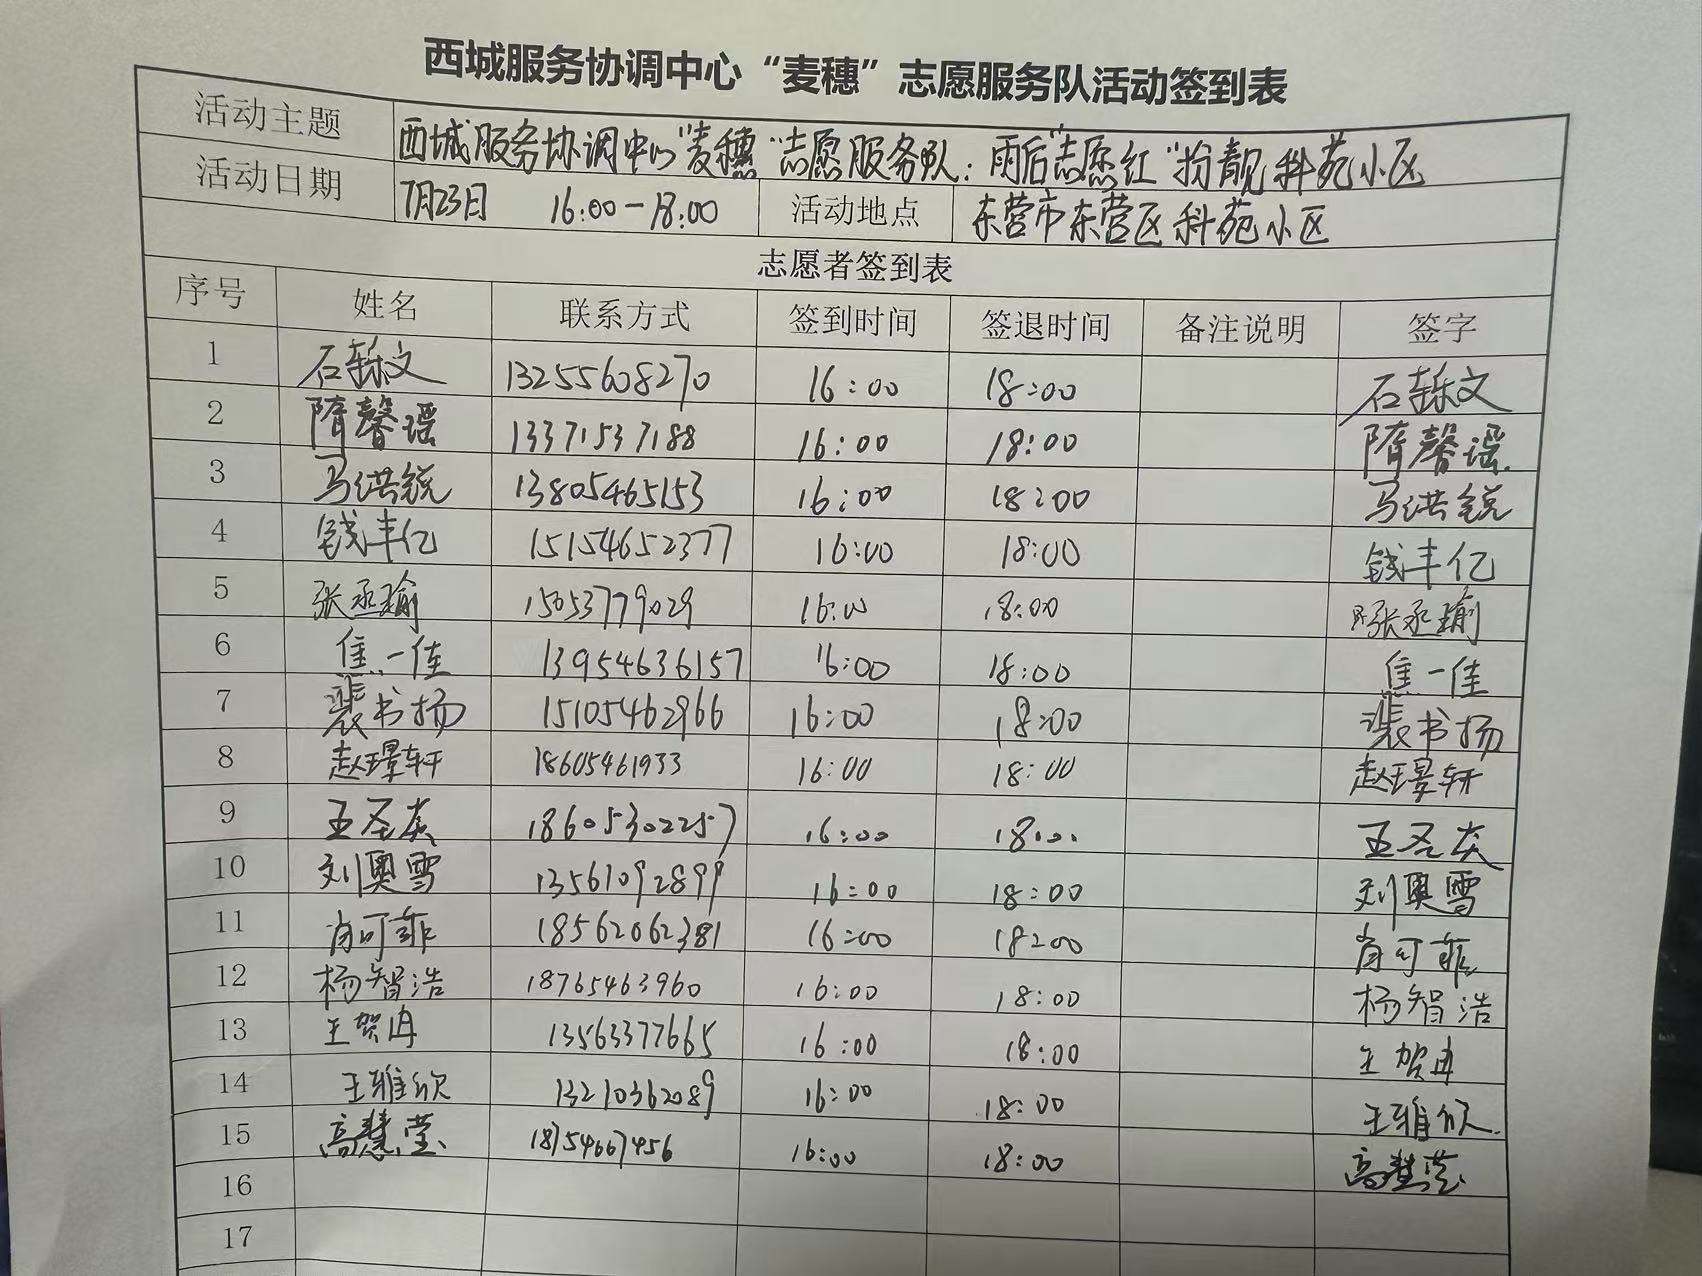 西城服务协调中心“麦穗”志愿服务队活动签到表
活动主题 西城服务协调中心“麦穗”志愿服务队：雨后“志愿红”扮靓科苑小区
活动日期 7月23日 16:00-18:00 活动地点 东营市东营区科苑小区
志愿者签到表
序号 姓名 联系方式 签到时间 签退时间 备注说明 签字
1 石轹文 13255608270 16:00 18:00 石轹文
2 隋馨谣 13371537188 16:00 18:00 隋馨谣
3 马洪锐 13805465153 16:00 18:00 马洪锐
4 钱丰亿 15154652377 16:00 18:00 钱丰亿
5 张丞瑜 15053779029 16:00 18:00 张丞瑜
6 焦一佳 13954636157 16:00 18:00 焦一佳
7 裴书扬 15105462966 16:00 18:00 裴书扬
8 赵璟轩 18605461933 16:00 18:00 赵璟轩
9 王圣 18605302257 16:00 18:00 王圣
10 刘奥雪 13561092899 16:00 18:00 刘奥雪
11 肖可菲 18562062381 16:00 18:00 肖可菲
12 杨智浩 18765463960 16:00 18:00 杨智浩
13 王贺冉 13563377665 16:00 18:00 王贺冉
14 王雅欣 13210362089 16:00 18:00 王雅欣
15 高慧莹 18754667456 16:00 18:00 高慧莹
16
17